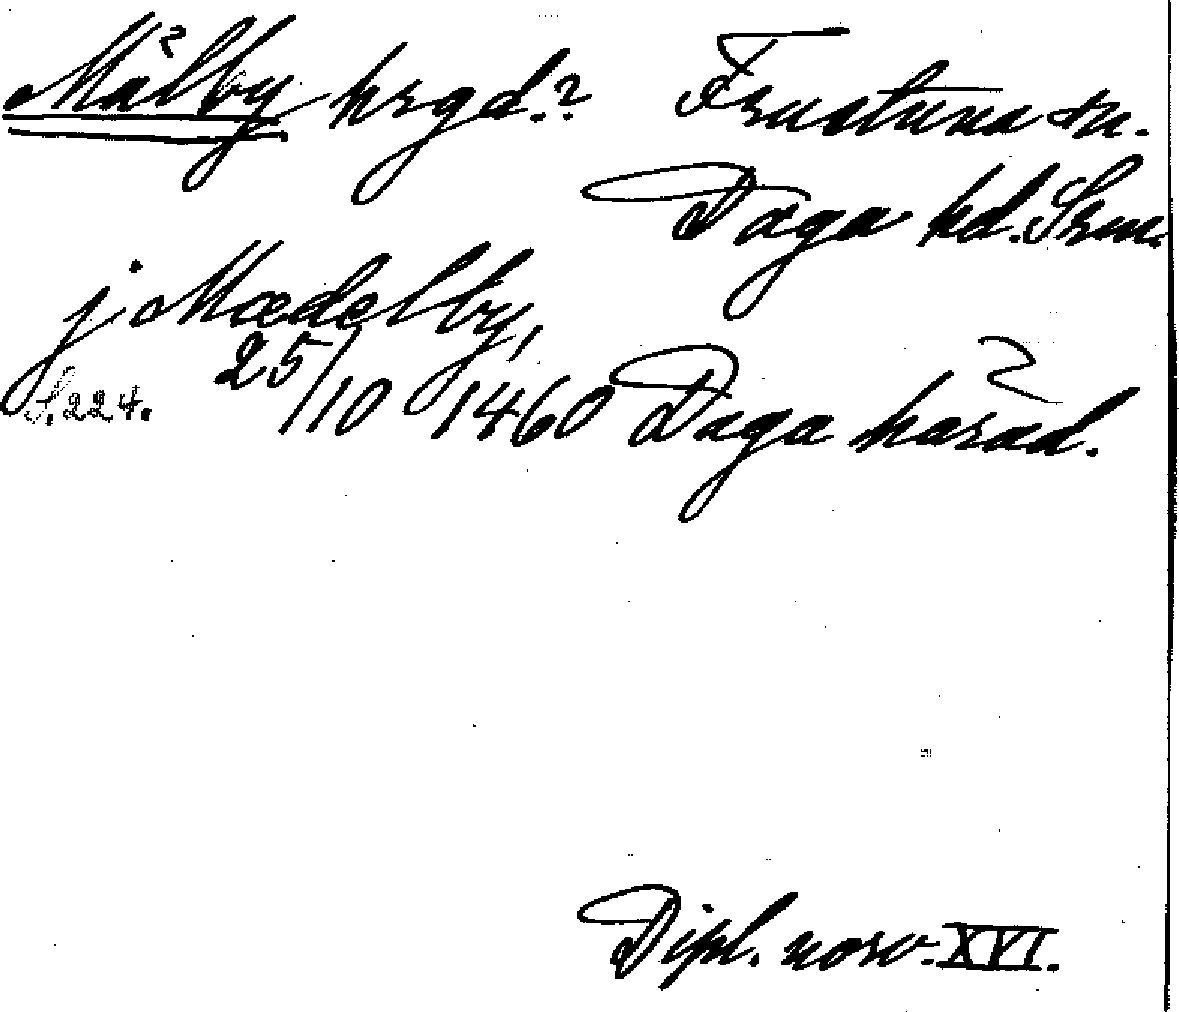 Målby hrgd.? Frustuna sn.
Daga hd. Srm.
j Mædelby,
S. 224. 25/10 1460 Daga harad.
Dipl. norv. XVI.